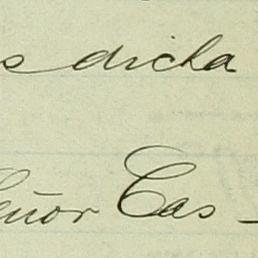 s dicha
eñor Cas-